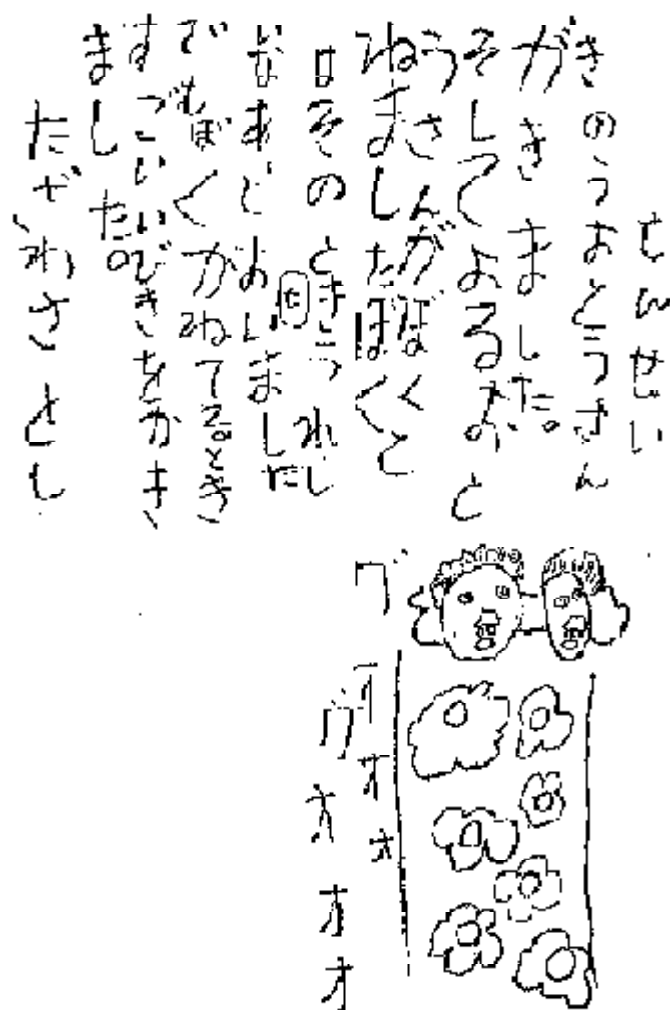 せんせい
きのうおとうさん
がきました。
そしてよるおと
うさんがぼくと
ねましたぼくと
はそのときうれし
いなあとおもいました
た
でもぼくがねてるとき
すごいいびきをかき
ました。
たざわさとし
グオオオ
グオオオ